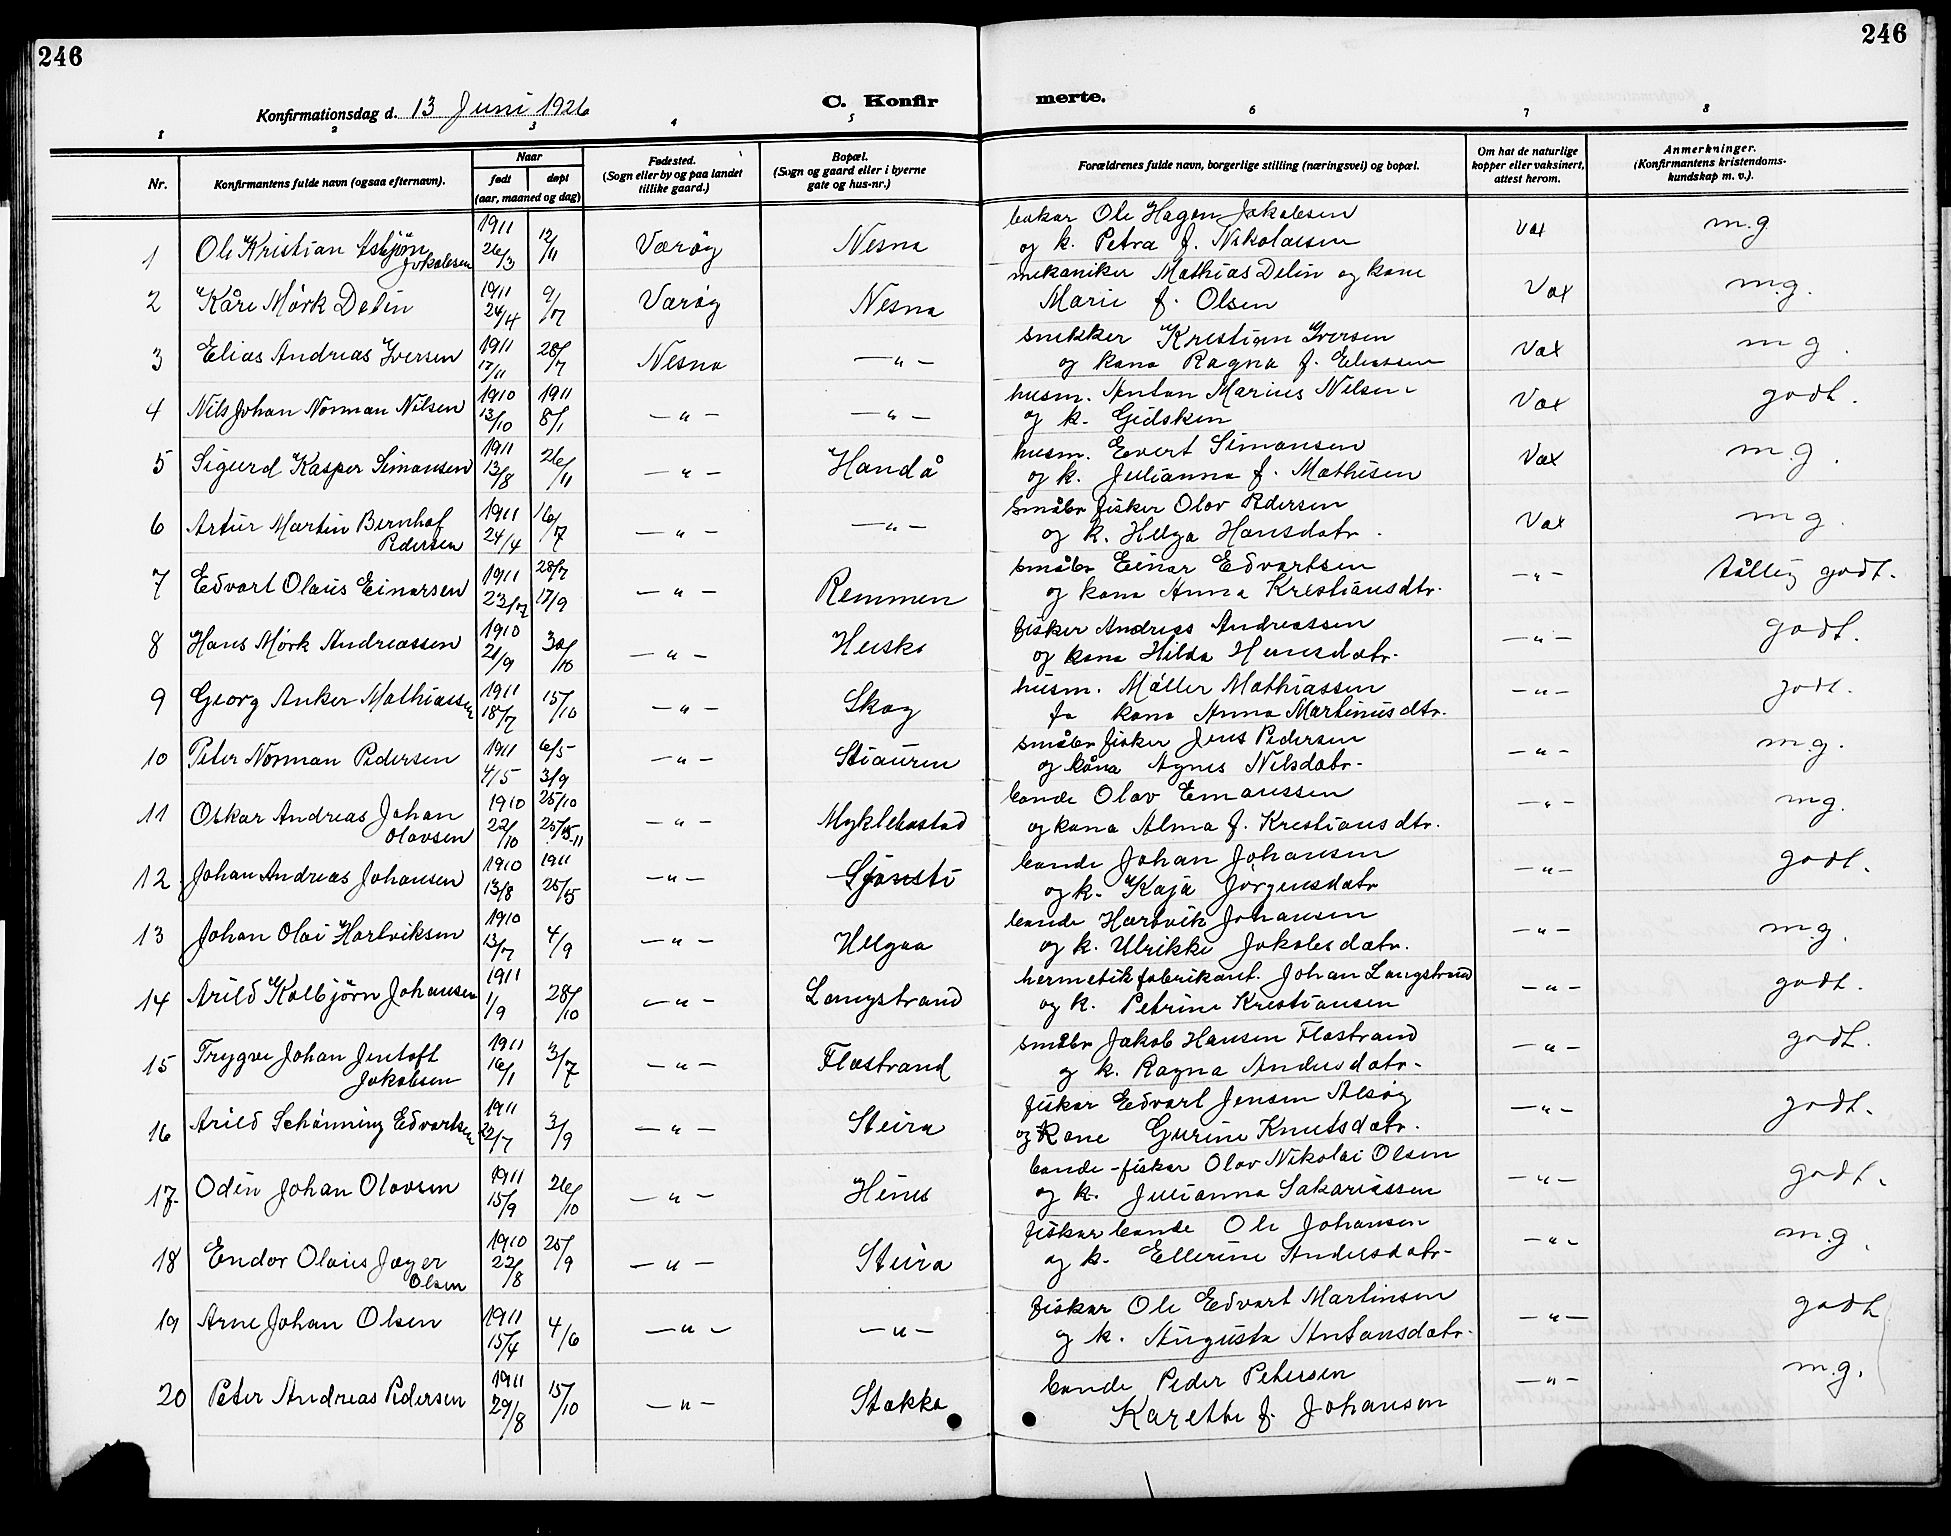 246
246
Konfirmationsdag d. 13 Juni 1926
C. Konfir
merte.
1 2 3 4 5 6 7 8
Nr.
Konfirmantens fulde navn (ogsaa efternavn).
Naar
født
døpt
(aar, maaned og dag)
Fødested.
(Sogn eller by og paa landet
tillike gaard.)
Bopæl.
(Sogn og gaard eller i byerne
gate og hus-nr.)
Forældrenes fulde navn, borgerlige stilling (næringsvei) og bopæl.
Om hat de naturlige
kopper eller vaksinert,
attest herom.
Anmerkninger.
(Konfirmantens kristendoms-
kundskap m. v.).
1 Ole Kristian Asbjørn Jakobsen 1911 26/3 12/11 Værøy Nesna
baker Ole Hagen Jakobsen
og k. Petra f. Nikolaisen vax m.g
2 Kåre Mørk Delin 1911 24/4 9/7 Værøy Nesna
mekaniker Mathias Delin og kone
Marie f. Olsen Vax m.g.
3 Elias Andreas Iversen 1911 17/11 28/7 Nesna —„—
snekker Kristian Iversen
og kona Ragna f. Eliassen Vax m g.
4 Nils Johan Norman Nilsen 1910 13/10 1911 8/1 —„— —„—
husm. Anton Marius Nilsen
og k. Gidsken Vax godt.
5 Sigurd Kasper Simonsen 1911 13/8 26/11 —„— Handå
husm. Evert Simonsen
og k. Julianna f. Mathisen Vax m.g.
6 Artur Martin Bernhof Pedersen 1911 24/4 16/7 —„— —„—
småbr fisker Olov Pedersen
og k. Helga Hansdatr. Vax m g.
7 Edvart Olaus Einarsen 1911 23/7 28/7 17/9 —„— Remmen
småbr Einar Edvartsen
og kona Anna Kristiansdtr. —„— tållig godt.
8 Hans Mørk Andreassen 1910 21/9 30/10 —„— Husko
fisker Andreas Andreassen
og kona Hilda Hansdatr. —„— godt.
9 Georg Anker Mathiassen 1911 18/7 15/10 —„— Skog
husm. Møller Mathiassen
fo kona Anna Martinusdtr. —„— godt.
10 Peter Norman Pedersen 1911 4/5 6/5 3/9 —„— Stiauren
småbr fisker Jens Pedersen
og kåna Agnes Nilsdatr- —„— m.g.
11 Oskar Andreas Johan Olovsen 1910 22/10 25/10 —„— Myklebostad
bonde Olav Emaussen
og kona Alma f. Kristiansdtr. —„— mg.
12 Johan Andreas Johansen 1910 13/8 1911 25/5 —„— Sjonsti
bonde Johan Johansen
og k. Kaja Jørgensdatr —„— godt.
13 Johan Olai Hartviksen 1910 13/7 4/9 —„— Helgaa
bonde Hartvik Johansen
og k. Ulrikke Jakobsdatr. —„— m.g.
14 Arild Kolbjørn Johansen 1911 1/9 28/10 —„— Langstrand
hermetikfabrikant. Johan Langstrand
og k. Petrine Kristiansen —„— godt.
15 Trygve Johan Jentoft Jakobsen 1911 16/1 3/7 —„— Flostrand
småbr Jakob Hansen Flostrand
og k. Ragna Andersdatr- —„— godt.
16 Arild Schønning Edvartsen 1911 22/7 3/9 —„— Steira
fisker Edvart Jensen Alsøy
og Kone Gurine Knutsdatr. —„— godt.
17 Odin Johan Olovsen 1911 15/9 26/10 —„— Hines
bonde-fisker Olov Nikolai Olsen
og k. Julianna Sakariassen —„— godt.
18 Endor Olaus Jæger Olsen 1910 22/8 25/9 —„— Steira
fiskar bonde Ole Johansen
og k. Ellerine Andersdatr- —„— m.g.
19 Arne Johan Olsen 1911 15/4 4/6 —„— —„—
fisker Ole Edvart Martinsen
og k. Augusta Antonsdatr. —„— godt
20 Peter Andreas Pedersen 1911 29/8 15/10 —„— Stokka
bonde Peder Petersen
Karethe f. Johanson —„— m.g.